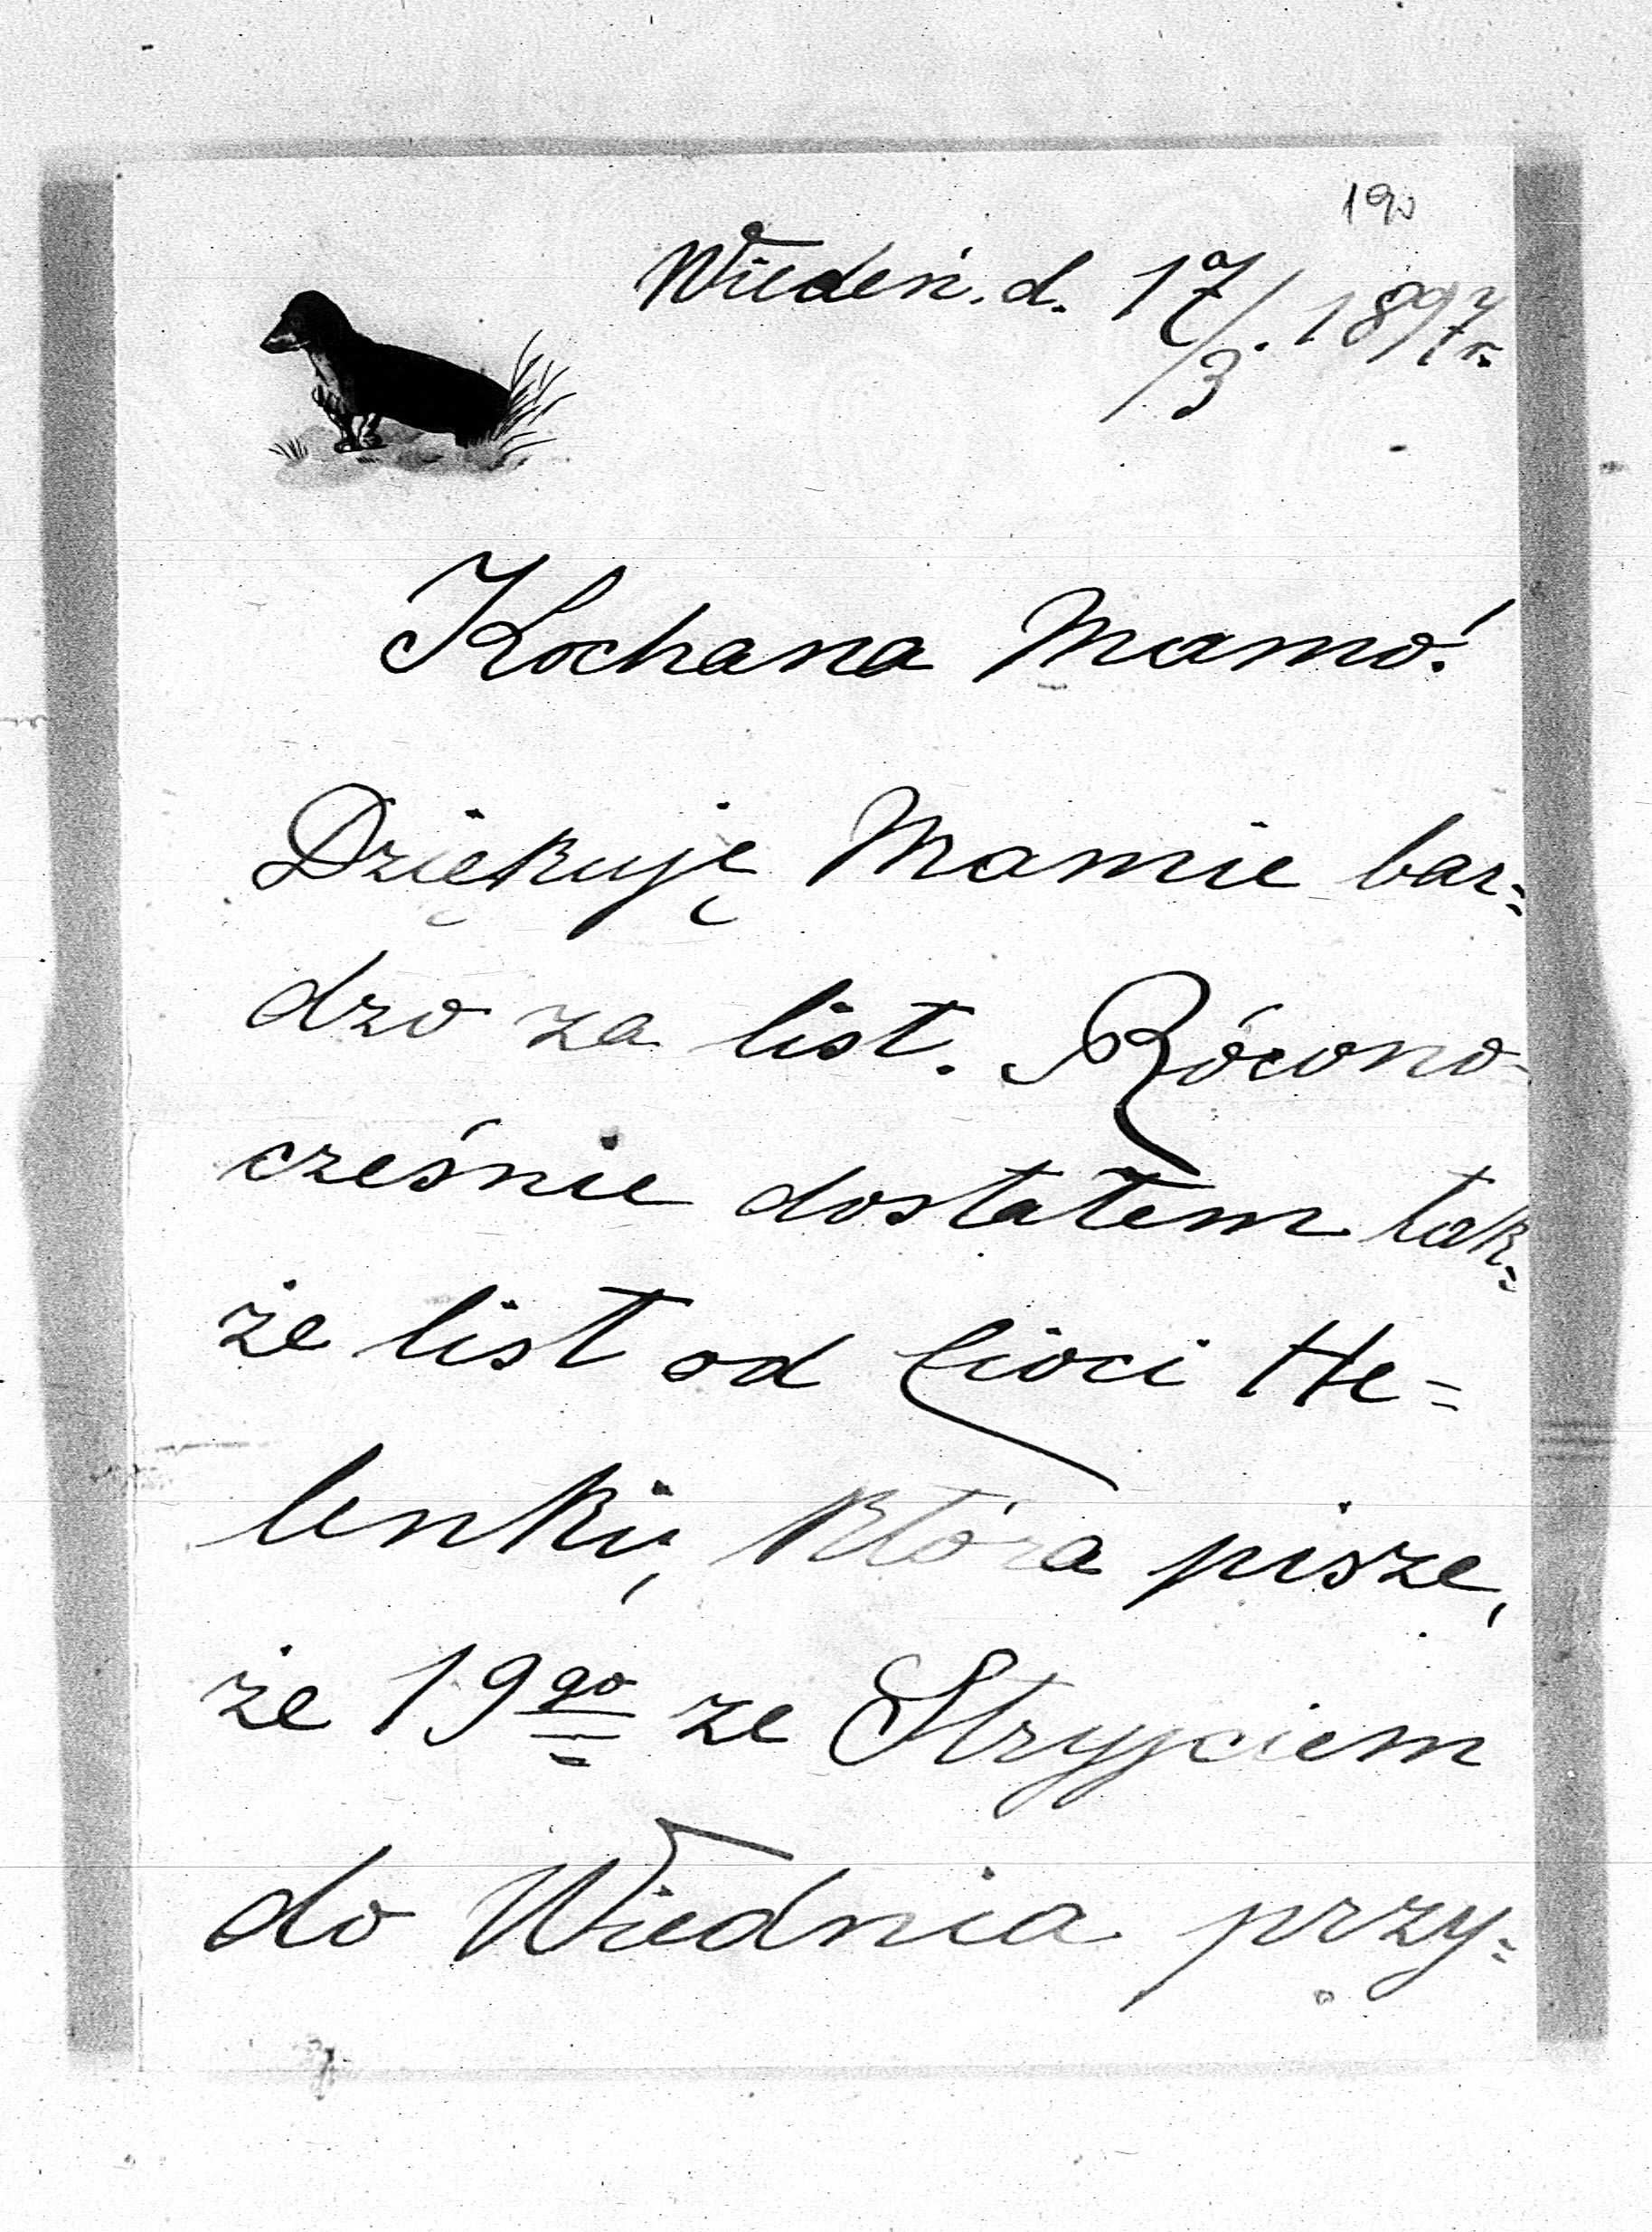 190
Wiedeń. d. 17/3. 1897 r.
Kochana Mamo!
Dziękuję Mamie bar=
dzo za list. Równo-
cześnie dostałem tak=
że list od Cioci He=
lenki, która pisze,
że 19go ze Stryjciem
do Wiednia przy=